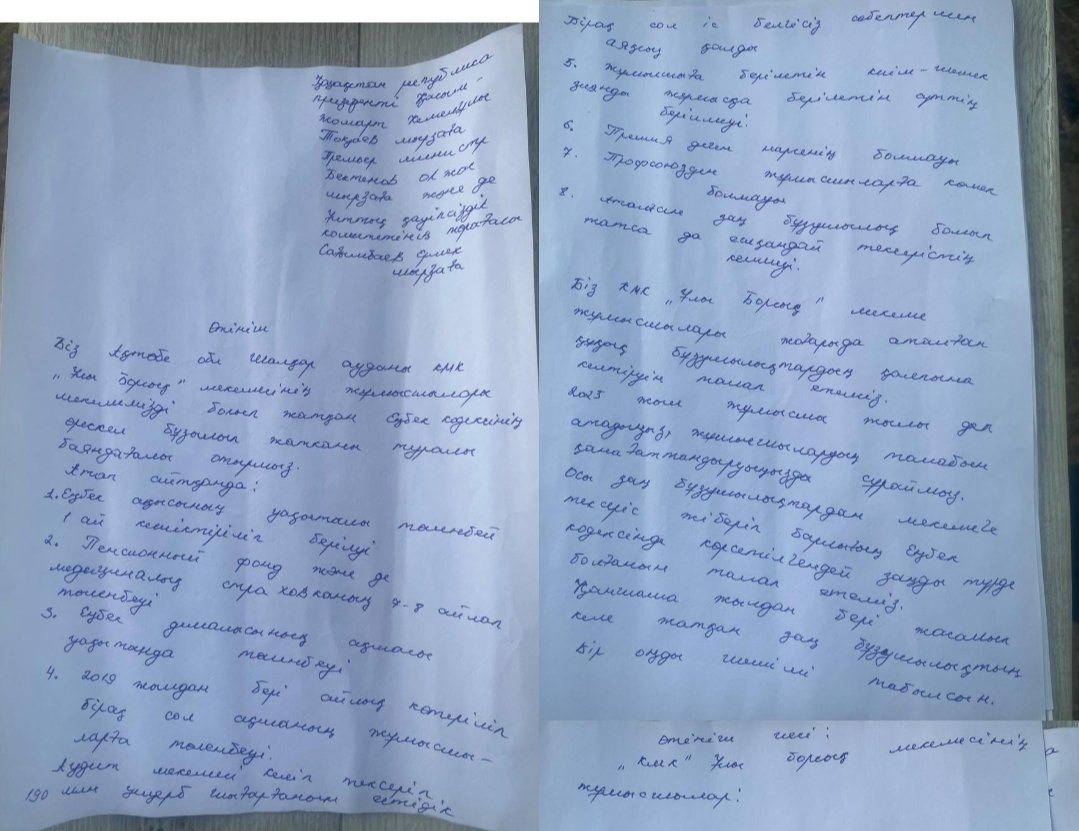 Қазақстан республика
президенті Қасым-
жомарт Кемелұлы
Тоқаев мырзаға
Премьер министр
Бектенов Олжас
мырзаға және де
Ұлттық қауіпсіздік
комитетінің төрағасы
Сағымбаев Ермек
мырзаға
Өтініш
Біз Ақтөбе обл Шалқар ауданы КМК
"Ұлы Борсық" мекемесінің жұмысшылары
мекемемізді болып жатқан Еңбек кодексінің
өрескел бұзылып жатқаны туралы
баяндағалы отырмыз.
Атап айтқанда:
1. Еңбек ақысының уақытылы төленбей
1 ай кешіктіріліп берілуі
2. Пенсионный фонд және де
медециналық страховканың 7-8 айлап
төленбеуі
3. Еңбек демалысының ақшасы
уақытында төленбеуі
4. 2019 жылдан бері айлық көтеріліп
бірақ сол ақшаның жұмысшы-
ларға төленбеуі.
Аудит мекемесі келіп тексеріп
190 млн ущерб шығарғанын естідік
Бірақ сол іс белгісіз себептермен
аяқсыз қалды
5. Жұмысшыға берілетін киім-кешек
зиянды жұмысқа берілетін сүттің
берілмеуі.
6. Премия деген нәрсенің болмауы
7. Профсоюздың жұмысшыларға көмек
болмауы
8. Аталмыш заң бұзушылық болып
жатса да ешқандай тексерістің
келмеуі.
Біз КМК "Ұлы Борсық" мекеме
жұмысшылары жоғарыда аталған
құқық бұзушылықтардың қалпына
келтіруін талап етеміз.
2025 жыл жұмысшы жылы деп
атадыңыз, жұмысшылардың талабын
қанағаттандыруыңызды сұраймыз.
Осы заң бұзушылықтардан мекемеге
тексеріс жіберіп барлығың Еңбек
кодексінде көрсетілгендей заңды түрде
болғанын талап етеміз.
Қаншама жылдан бері жасалып
келе жатқан заң бұзушылықтың
Бір оңды шешімі табылсын.
Өтініш иесі:
"КМК" Ұлы борсық мекемесінің
жұмысшылар: